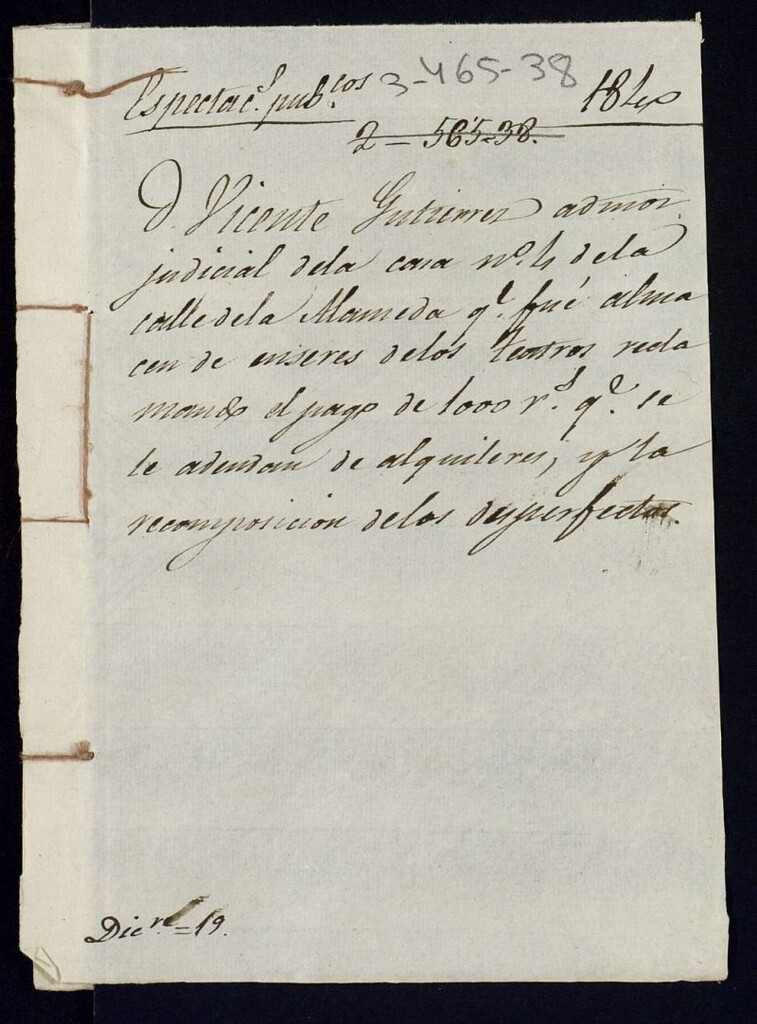 Espectac.s pub.cos 3-465-38 1840
2 - 565-38.
D. Vicente Gutierrez admor.
judicial dela casa nº. 4 dela
calle dela Alameda q.e fué alma
cen de enseres delos teatros recla
mando el pago de 1000 r.s q.e se
le adeudan de alquileres, y la
recomposicion delos desperfectos.
Dic.re = 19.